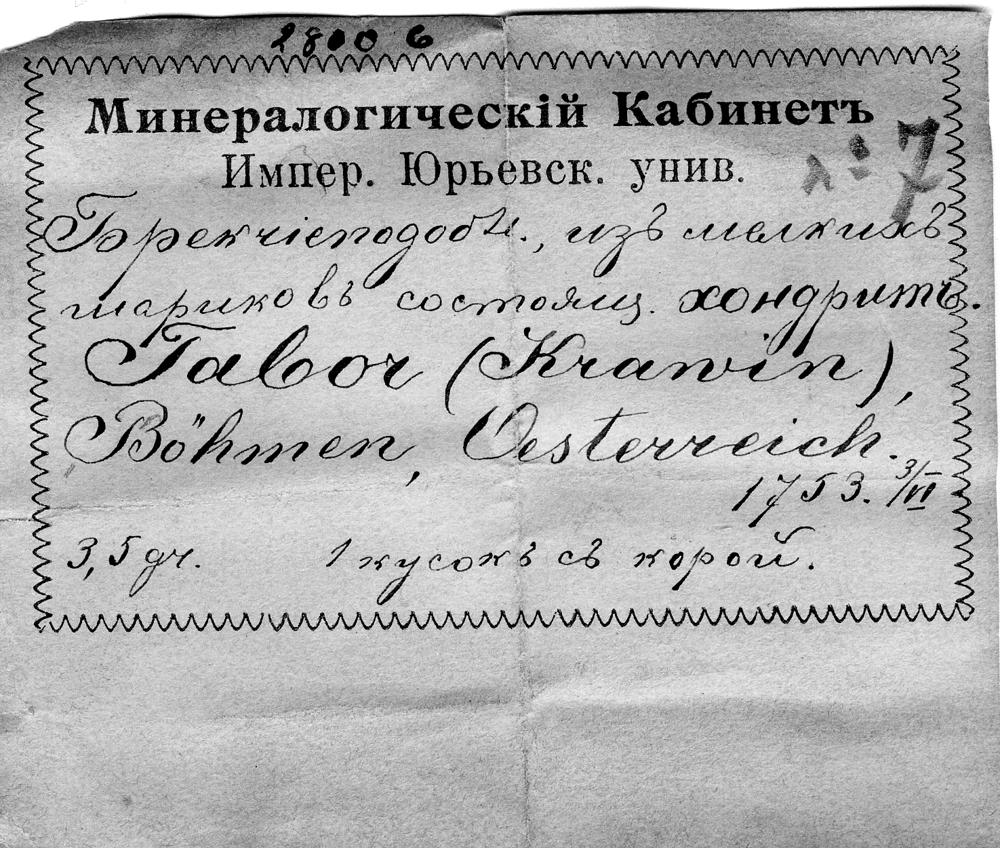 2800 6
Минералогическій Кабинетъ
Импер. Юрьевск. унив.
№ 7
Брекчіеподобн., изъ мелкихъ
шариковъ состоящ. хондритъ.
Tabor (Krawin),
Böhmen, Oesterreich.
1753. 3/VI
3,5 gr. 1 кусокъ съ корой.